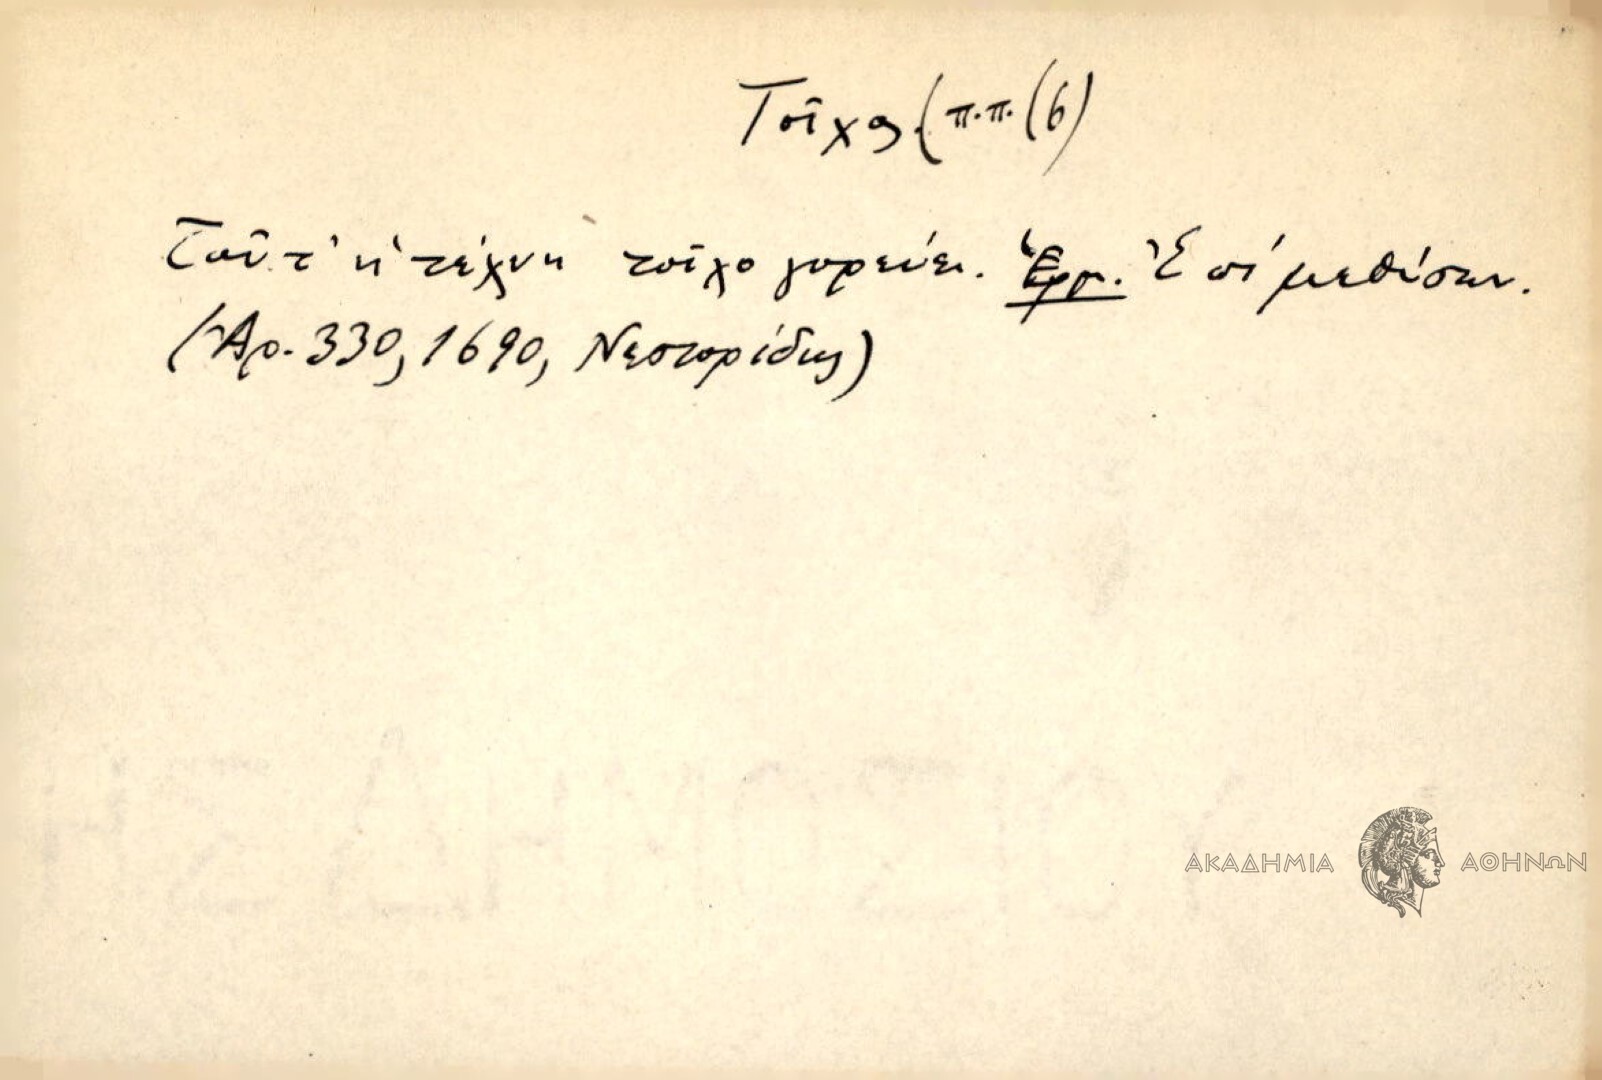 Τοῖχος (π.π. (6)
Τοῦτ' ἡ τέχνη τοῖχο γυρεύει. Ἑρμ. Ἐπὶ μεθύσων.
(Ἀρ. 330, 1690, Νεστορίδης)
ΑΚΑΔΗΜΙΑ ΑΘΗΝΩΝ